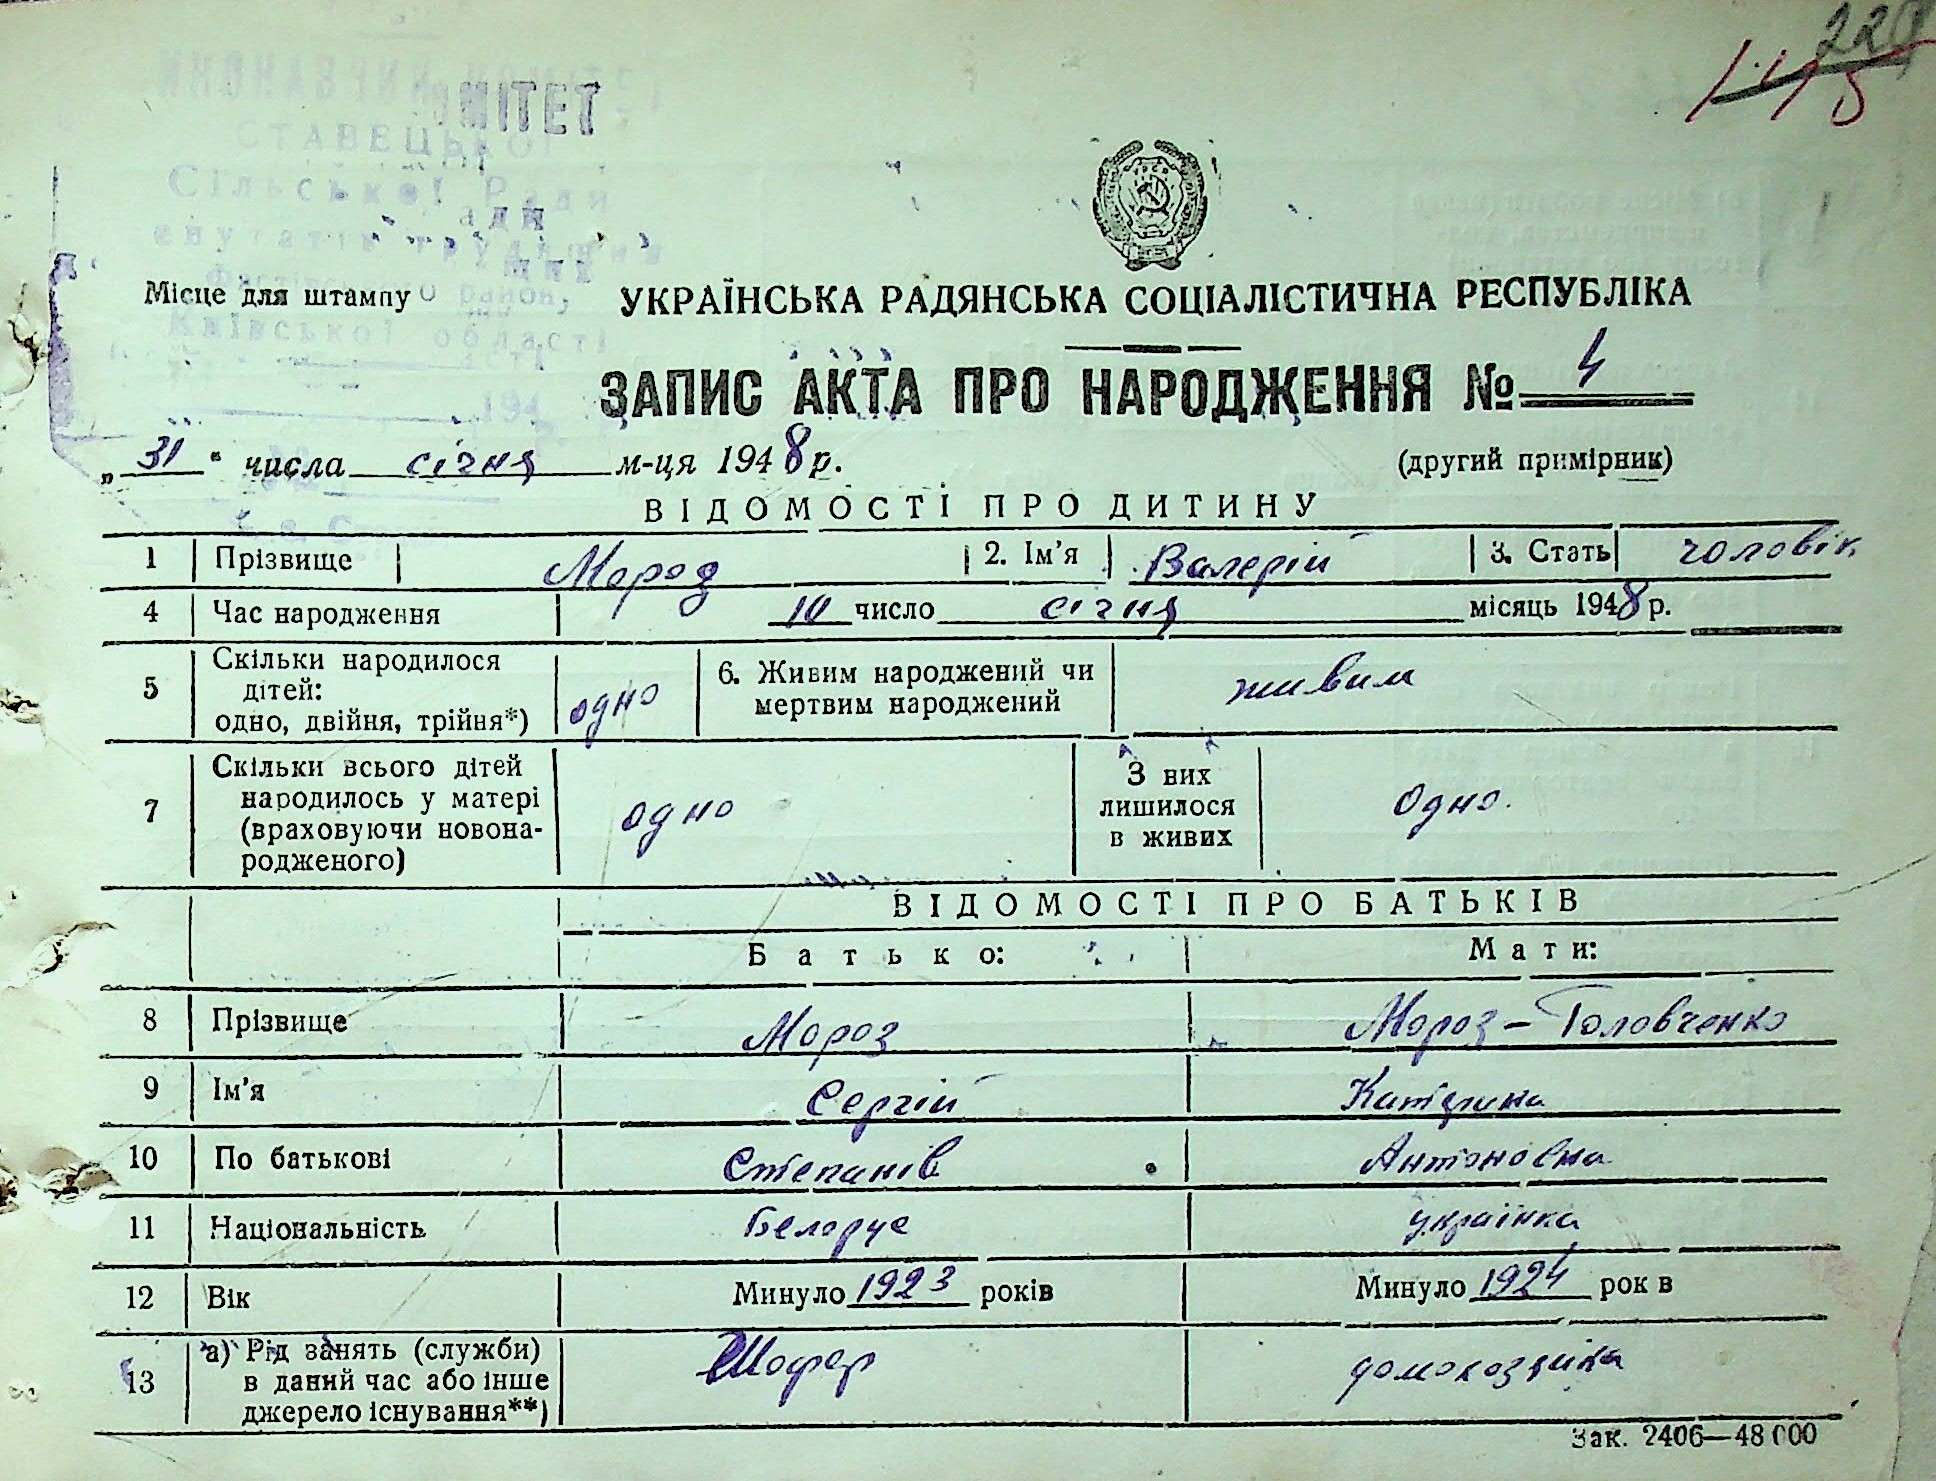 СТАВЕЦЬКОЇ
Сільської Ради
Київської області
194
Місце для штампу
УКРАЇНСЬКА РАДЯНСЬКА СОЦІАЛІСТИЧНА РЕСПУБЛІКА
ЗАПИС АКТА ПРО НАРОДЖЕННЯ № 4
„31“ числа січня м-ця 1948 р.
(другий примірник)
ВІДОМОСТІ ПРО ДИТИНУ
1 Прізвище Мороз 2. Ім’я Валерій 3. Стать чоловік
4 Час народження 10 число січня місяць 1948 р.
5 Скільки народилося
дітей:
одно, двійня, трійня*) одно
6. Живим народжений чи
мертвим народжений живим
7 Скільки всього дітей
народилось у матері
(враховуючи новона-
родженого) одно
З них
лишилося
в живих одно.
ВІДОМОСТІ ПРО БАТЬКІВ
Батько: Мати:
8 Прізвище Мороз Мороз-Головченко
9 Ім’я Сергій Катерина
10 По батькові Степанів Антоновна
11 Національність Белорус українка
12 Вік Минуло 1923 років Минуло 1924 рок в
13 а) Рід занять (служби)
в даний час або інше
джерело існування**) Шофер домохазяйка
Зак. 2406—48 000